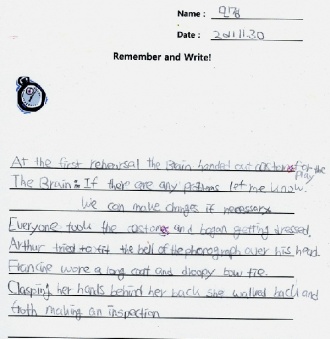 Name : 민정
Date : 2011.11.30
Remember and Write!
At the first rehearsal the Brain handed out costumes for the play
The Brain : If there are any problems let me know.
We can make changes if necessary
Everyone took the costumes and began getting dressed.
Arthur tried to fit the bell of the phonograph over his head.
Francine wore a long coat and droopy bow tie.
Clasping her hands behind her back she walked back and
froth making an inspection